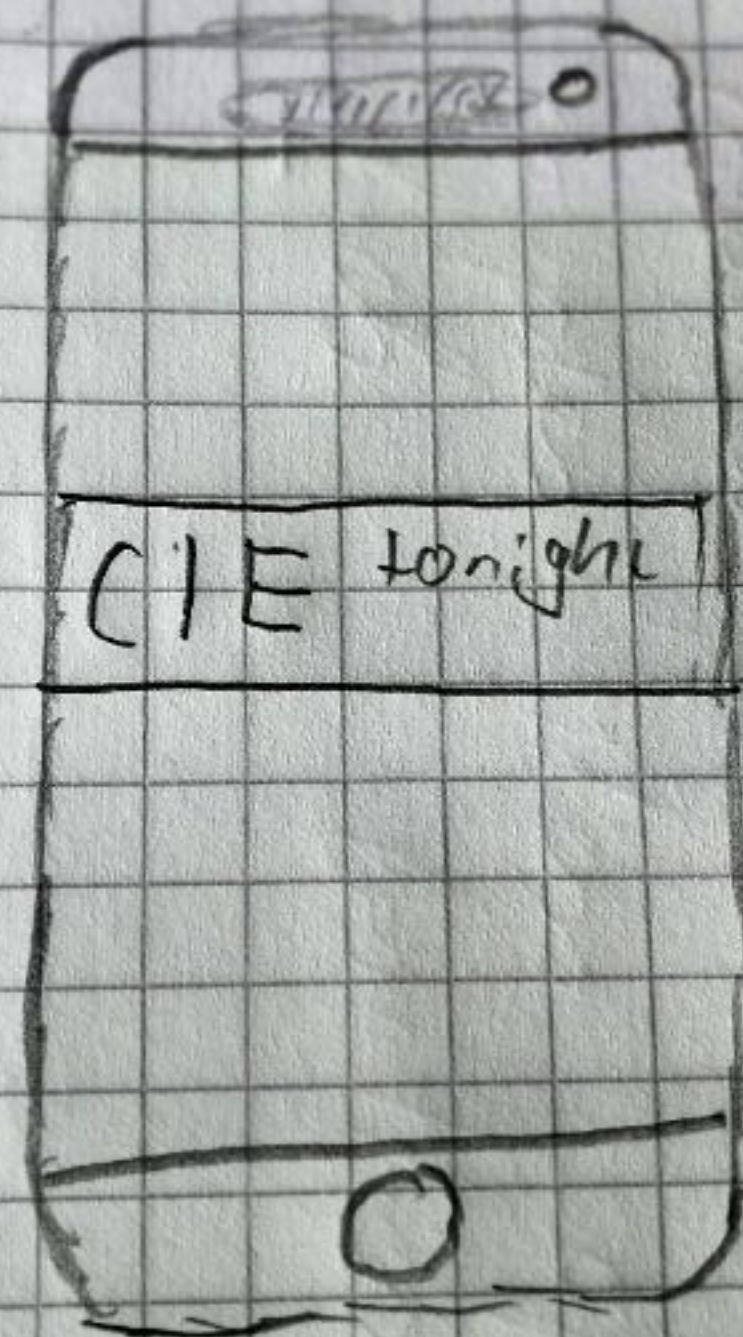 CIE tonight